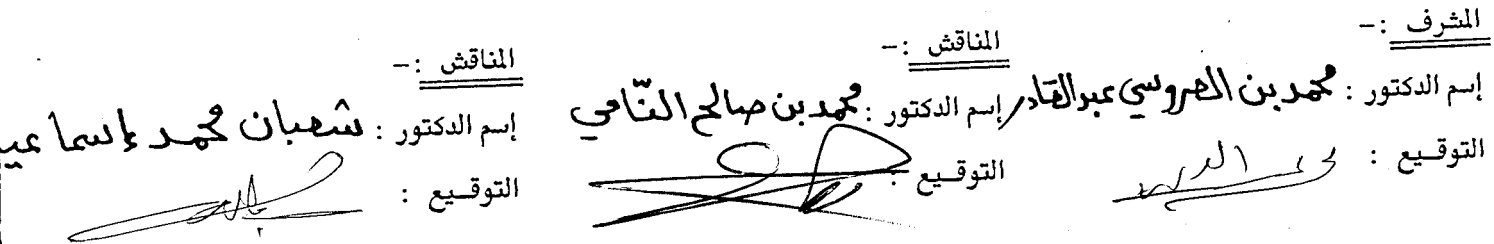 المشرف :-
إسم الدكتور : محمد بن العروسي عبدالقادر
التوقيع :
المناقش :-
إسم الدكتور : محمد بن صالح النّامي
التوقيع :
المناقش :-
إسم الدكتور : شعبان محمد إسماعيل
التوقيع :